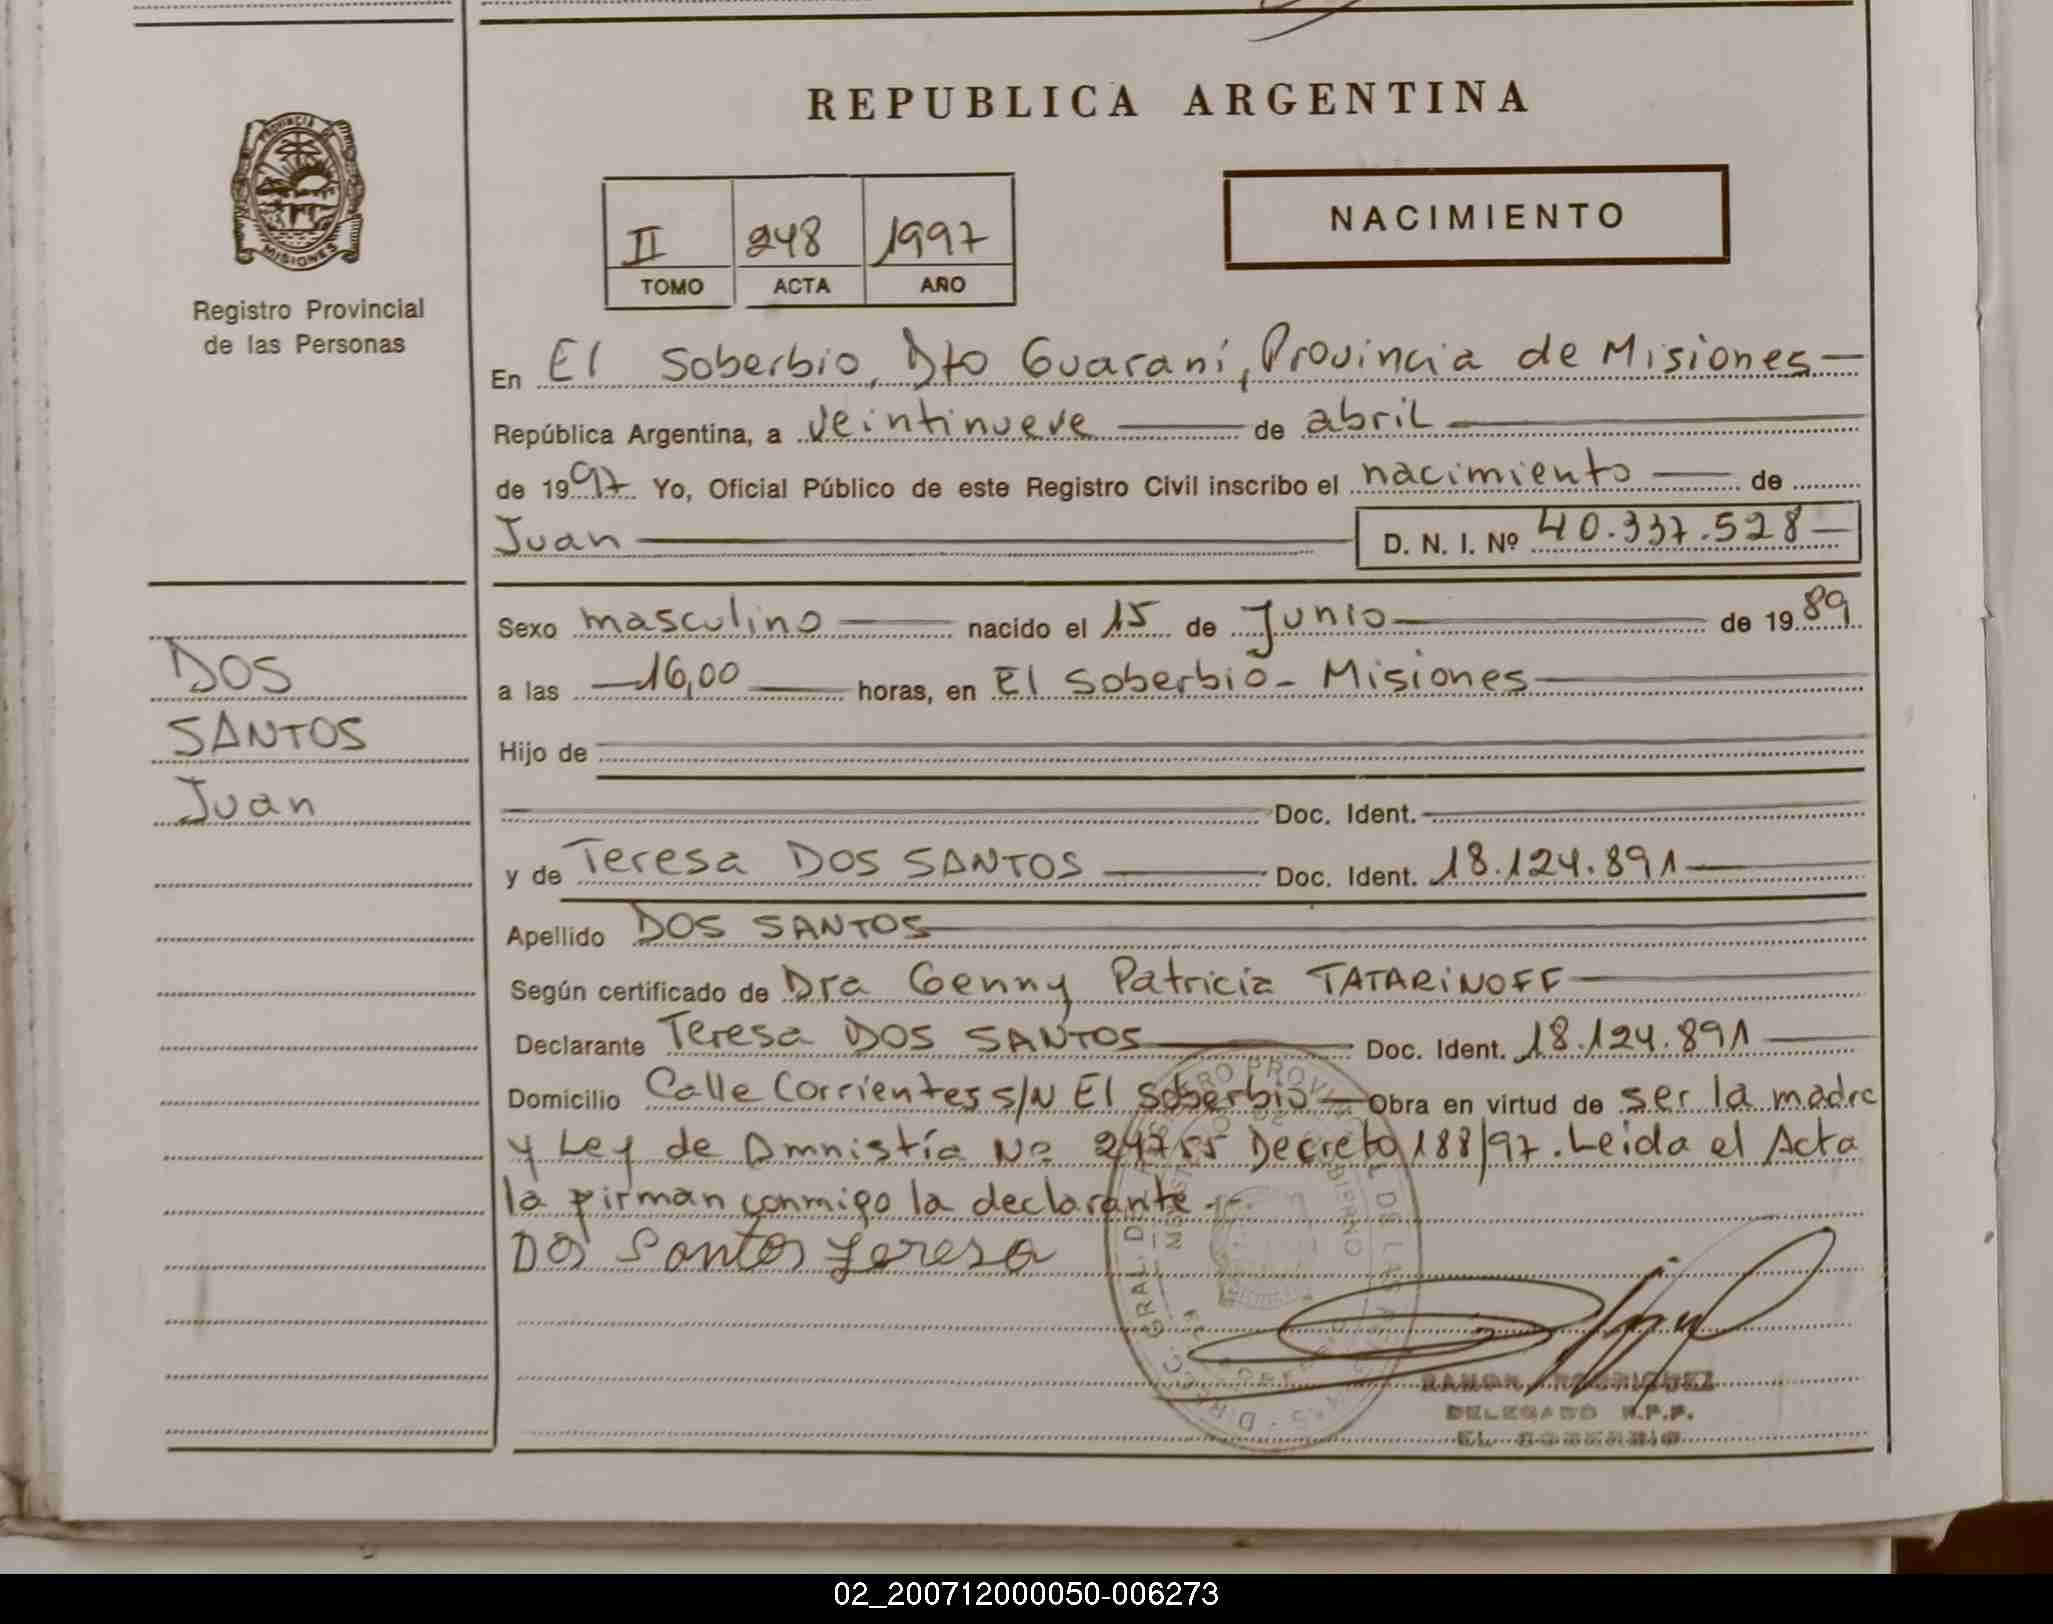 REPUBLICA ARGENTINA
PROVINCIA DE
MISIONES
Registro Provincial
de las Personas
NACIMIENTO
II 248 1997
TOMO ACTA AÑO
En El Soberbio, Dto Guaraní, Provincia de Misiones —
República Argentina, a veintinueve — de abril —
de 1997 Yo, Oficial Público de este Registro Civil inscribo el nacimiento — de
Juan — D. N. I. Nº 40.337.528 —
Sexo masculino — nacido el 15 de Junio — de 1989
a las — 16,00 — horas, en El Soberbio - Misiones —
Hijo de
Doc. Ident.
y de Teresa DOS SANTOS — Doc. Ident. 18.124.891 —
Apellido DOS SANTOS —
Según certificado de Dra Genny Patricia TATARINOFF —
Declarante Teresa DOS SANTOS — Doc. Ident. 18.124.891 —
Domicilio Calle Corrientes s/N El Soberbio — Obra en virtud de ser la madre
y Ley de Amnistía Nº 24755 Decreto 188/97. Leida el Acta
la firman conmigo la declarante.-
Dos Santos Teresa
DOS
SANTOS
Juan
RAMON RODRIGUEZ
DELEGADO R.P.P.
EL SOBERBIO
02_200712000050-006273